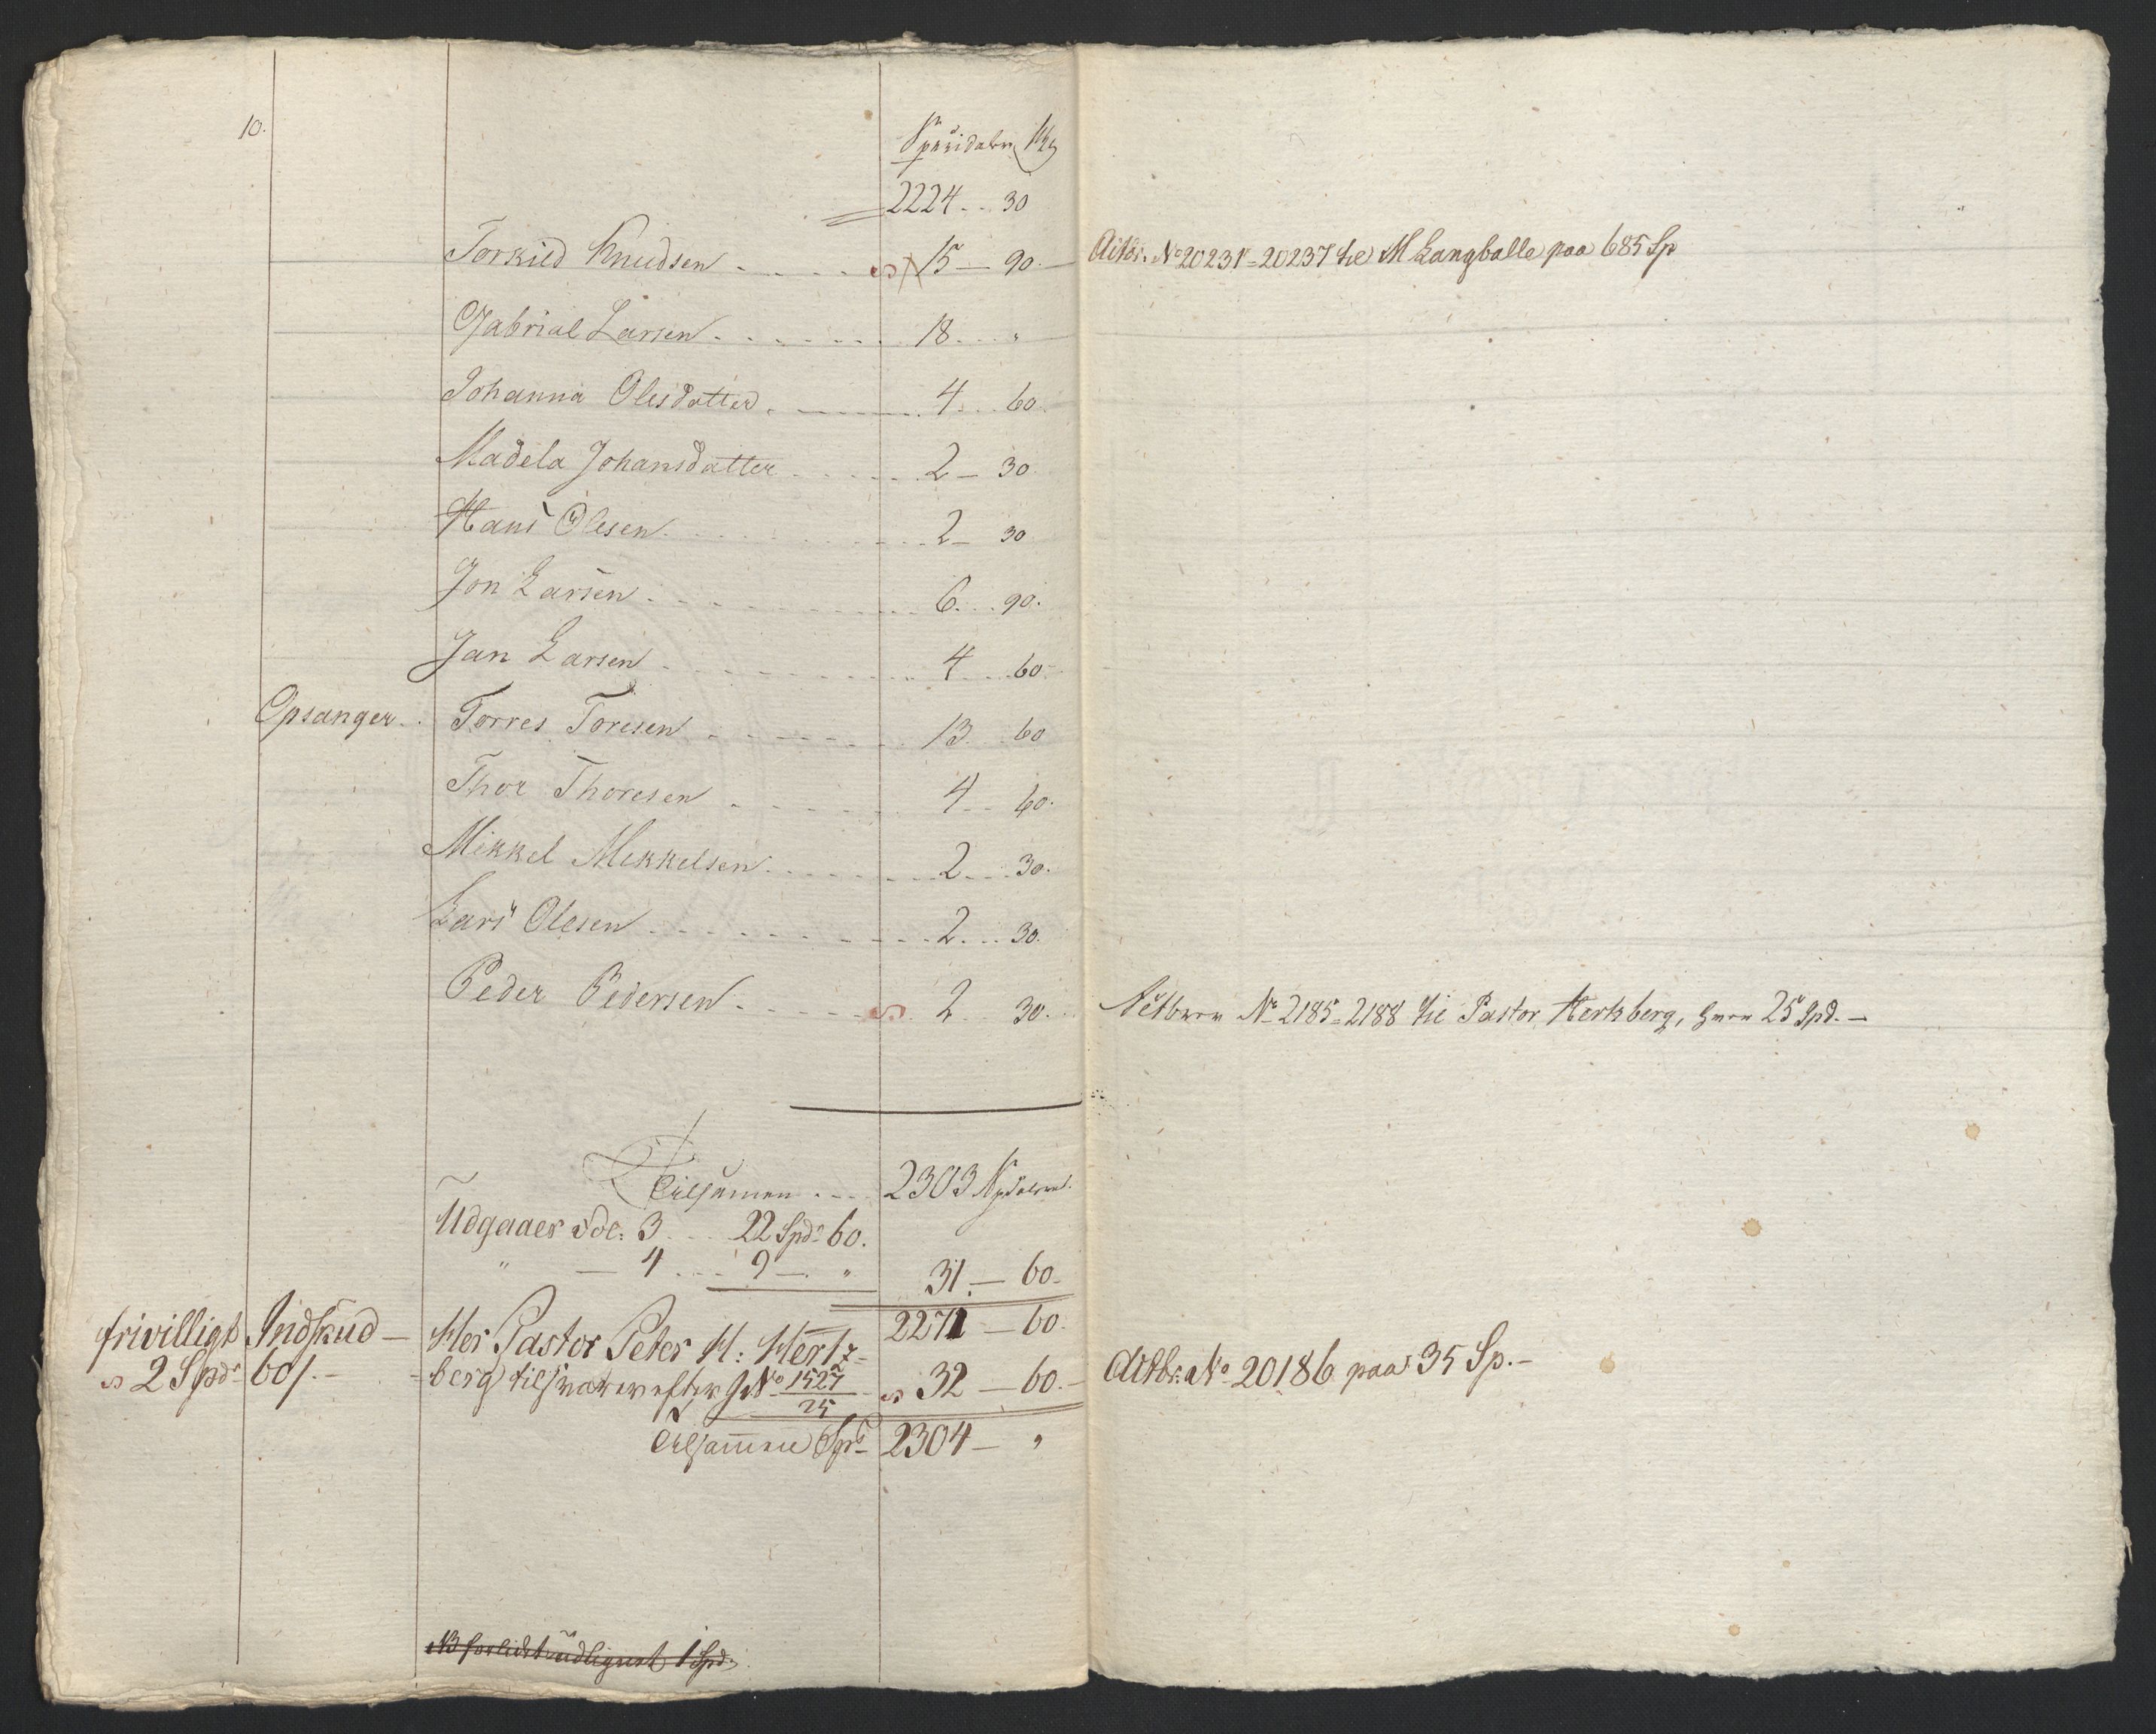 10.
Speciedaler ß
2224 .. 30
Torkild Knudsen ..... 15 — 90.
Actbr. No 20231 = 20237 til M Langballe paa 685 Sp
Gabrial Larsen ...... 18 ... "
Johanna Olesdatter ..... 4 ... 60.
Madela Johansdatter ..... 2 — 30
Hans Olesen ..... 2 — 30
Jon Larsen ..... 6 ... 90.
Jan Larsen ..... 4 ... 60.
Opsanger .. Torres Toresen ..... 13 .. 60
Thor Thoresen ..... 4 .. 60.
Mikkel Mikkelsen ..... 2 ... 30.
Lars Olesen ..... 2 ... 30.
Peder Pedersen ..... 2 .. 30.
No 2185 = 2188 til Pastor Hertzberg, 25 Spd. —
Tilsamen .... 2303 Spdaler
Udgaaer Fol: 3 ... 22 Spd. 60.
" — 4 .... 9 — " 31 — 60.
2271 — 60.
frivilligt Indskud — Her Pastor Peter H: Hertz=
2 Spdr 60 ß. — =berg tilsvarer efter No 1527/25 32 — 60. —
Actbr. No 20186 paa 35 Sp. —
Tilsammen Spd 2304 — "
NB 1 Spd.